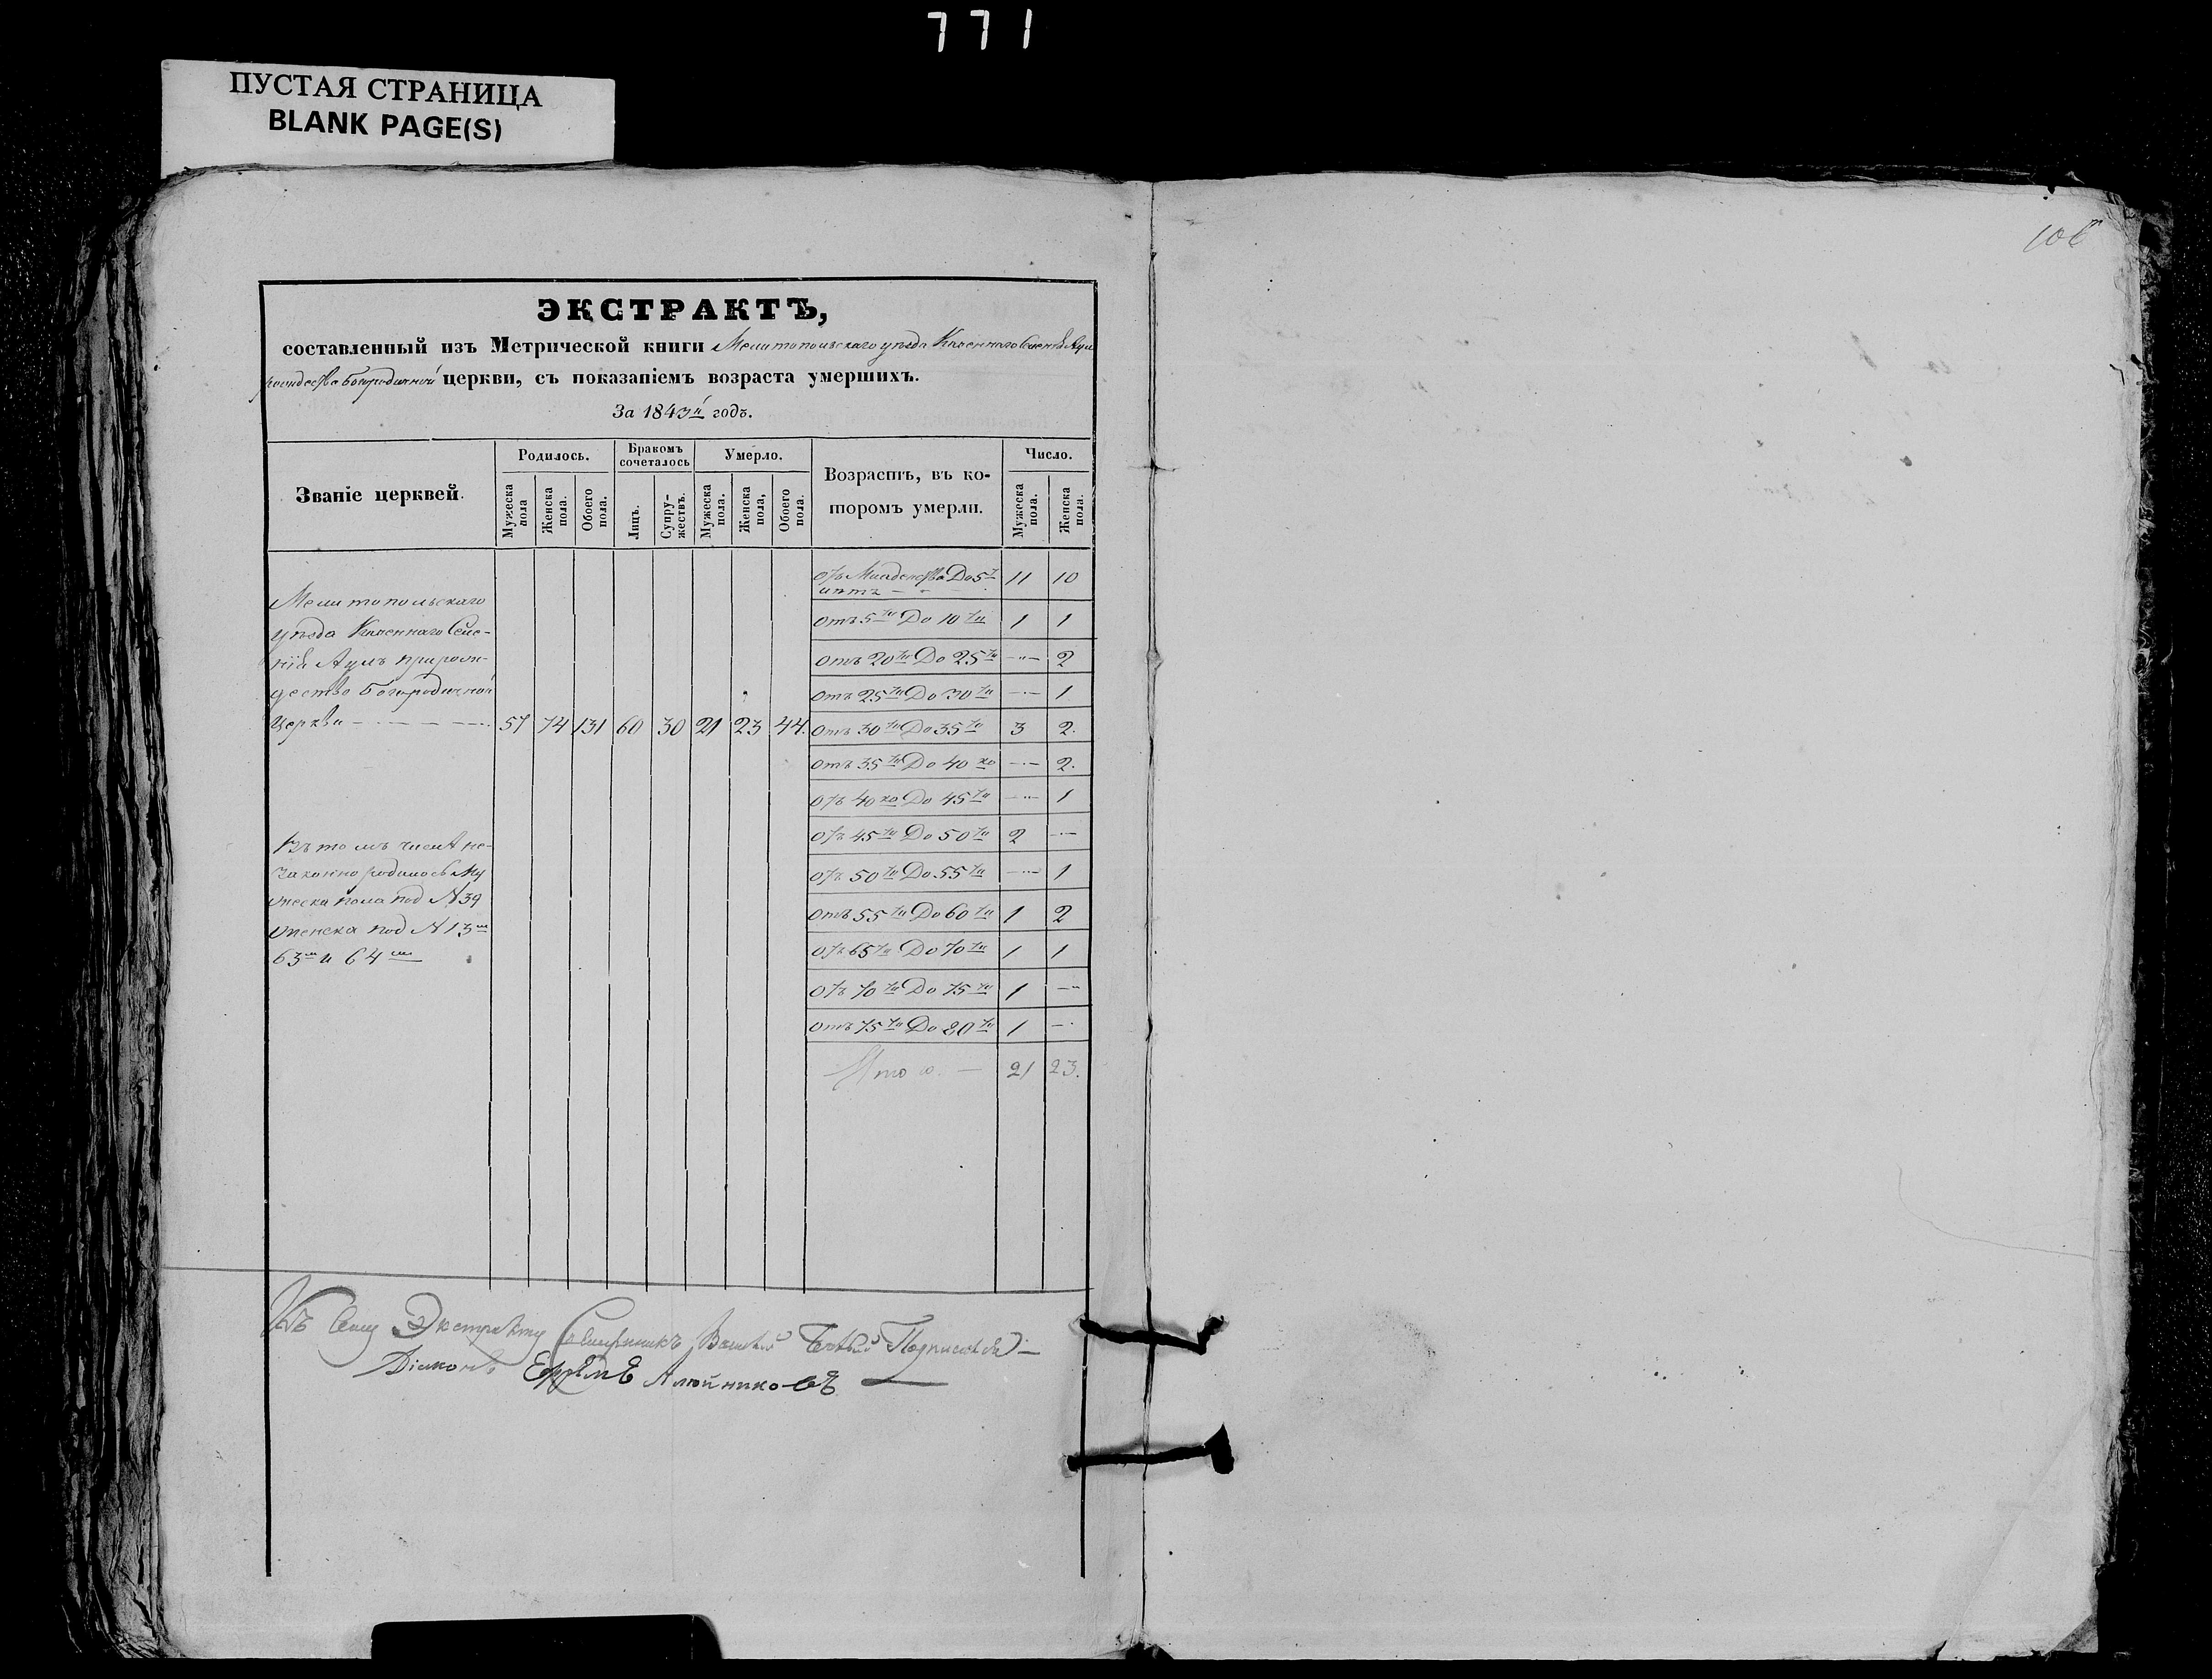 771
ПУСТАЯ СТРАНИЦА
BLANK PAGE(S)
106
ЭКСТРАКТЪ,
составленный изъ Метрической книги Мелитопольскаго уѣзда Казеннаго Селенія Аул
рождество Богородичной церкви, съ показаніемъ возраста умершихъ.
За 1843й годъ.
Званіе церквей.
Родилось.
Бракомъ сочеталось
Умерло.
Возрастъ, въ ко-
торомъ умерли.
Число.
Мужеска пола
Женска пола.
Обоего пола.
Лицъ.
Супру-жествъ.
Мужеска пола.
Женска пола,
Обоего пола.
Мужеска пола.
Женска пола.
отъ Младенства До 5ти 11 10
лѣтъ
отъ 5ти До 10ти 1 1
отъ 20ти До 25ти — 2
отъ 25ти До 30ти — 1
отъ 30ти До 35ти 3 2.
отъ 35ти До 40ко — 2.
отъ 40ко До 45ти — 1
отъ 45ти До 50ти 2 —
отъ 50ти До 55ти — 1
отъ 55ти До 60ти 1 2
отъ 65ти До 70ти 1 1
отъ 70ти До 75ти 1 —
отъ 75ти До 80ти 1 —
Итого. — 21 23.
Мелитопольскаго
уѣзда Казеннаго Селе-
нія Аулъ при рож-
дество Богородичной
Церкви — 57 74 131 60 30 21 23 44.
Въ томъ числѣ не-
законно родилось Му
жеска пола под № 39
женска под № 13м
63м и 64м
Къ сему Экстракту Священникъ Василий Подписался
Діаконъ Ефремъ Алейниковъ